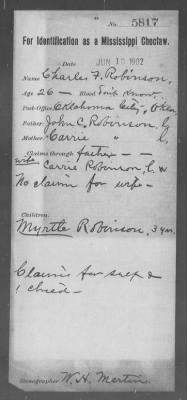 No. 5817
For Identification as a Mississippi Choctaw.
Date JUN 10 1902
Name Charles F. Robinson,
Age 26 — Blood Don't Know.
Post-Office, Oklahoma City, Okla
Father, John C. Robinson, L
Mother, Carrie " L
Claims through father —
wife Carrie Robinson, L. W
No claim for wife —
Children:
Myrtle Robinson, 3 yrs.
Claims for self &
1 child —
Stenographer W. H. Martin.